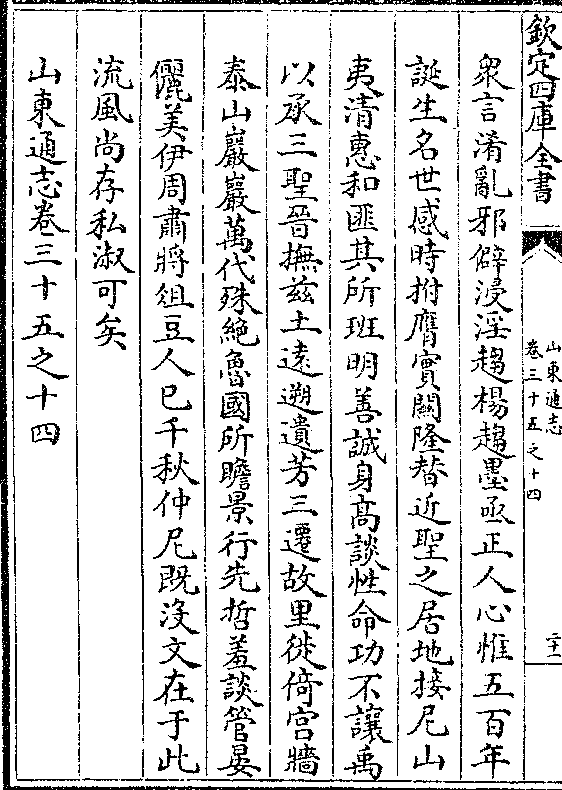 欽定四庫全書
山東通志
卷三十五之十四
二十一
衆言淆亂邪僻浸淫趨楊趨墨亟正人心惟五百年
誕生名世感時拊膺實關隆替近聖之居地接尼山
夷清惠和匪其所班明善誠身髙談性命功不讓禹
以承三聖晉撫兹土遠遡遺芳三遷故里徙倚宫牆
泰山巖巖萬代殊絶魯國所瞻景行先哲羞談管晏
儷美伊周肅將俎豆人已千秋仲尼既沒文在于此
流風尚存私淑可矣
山東通志卷三十五之十四